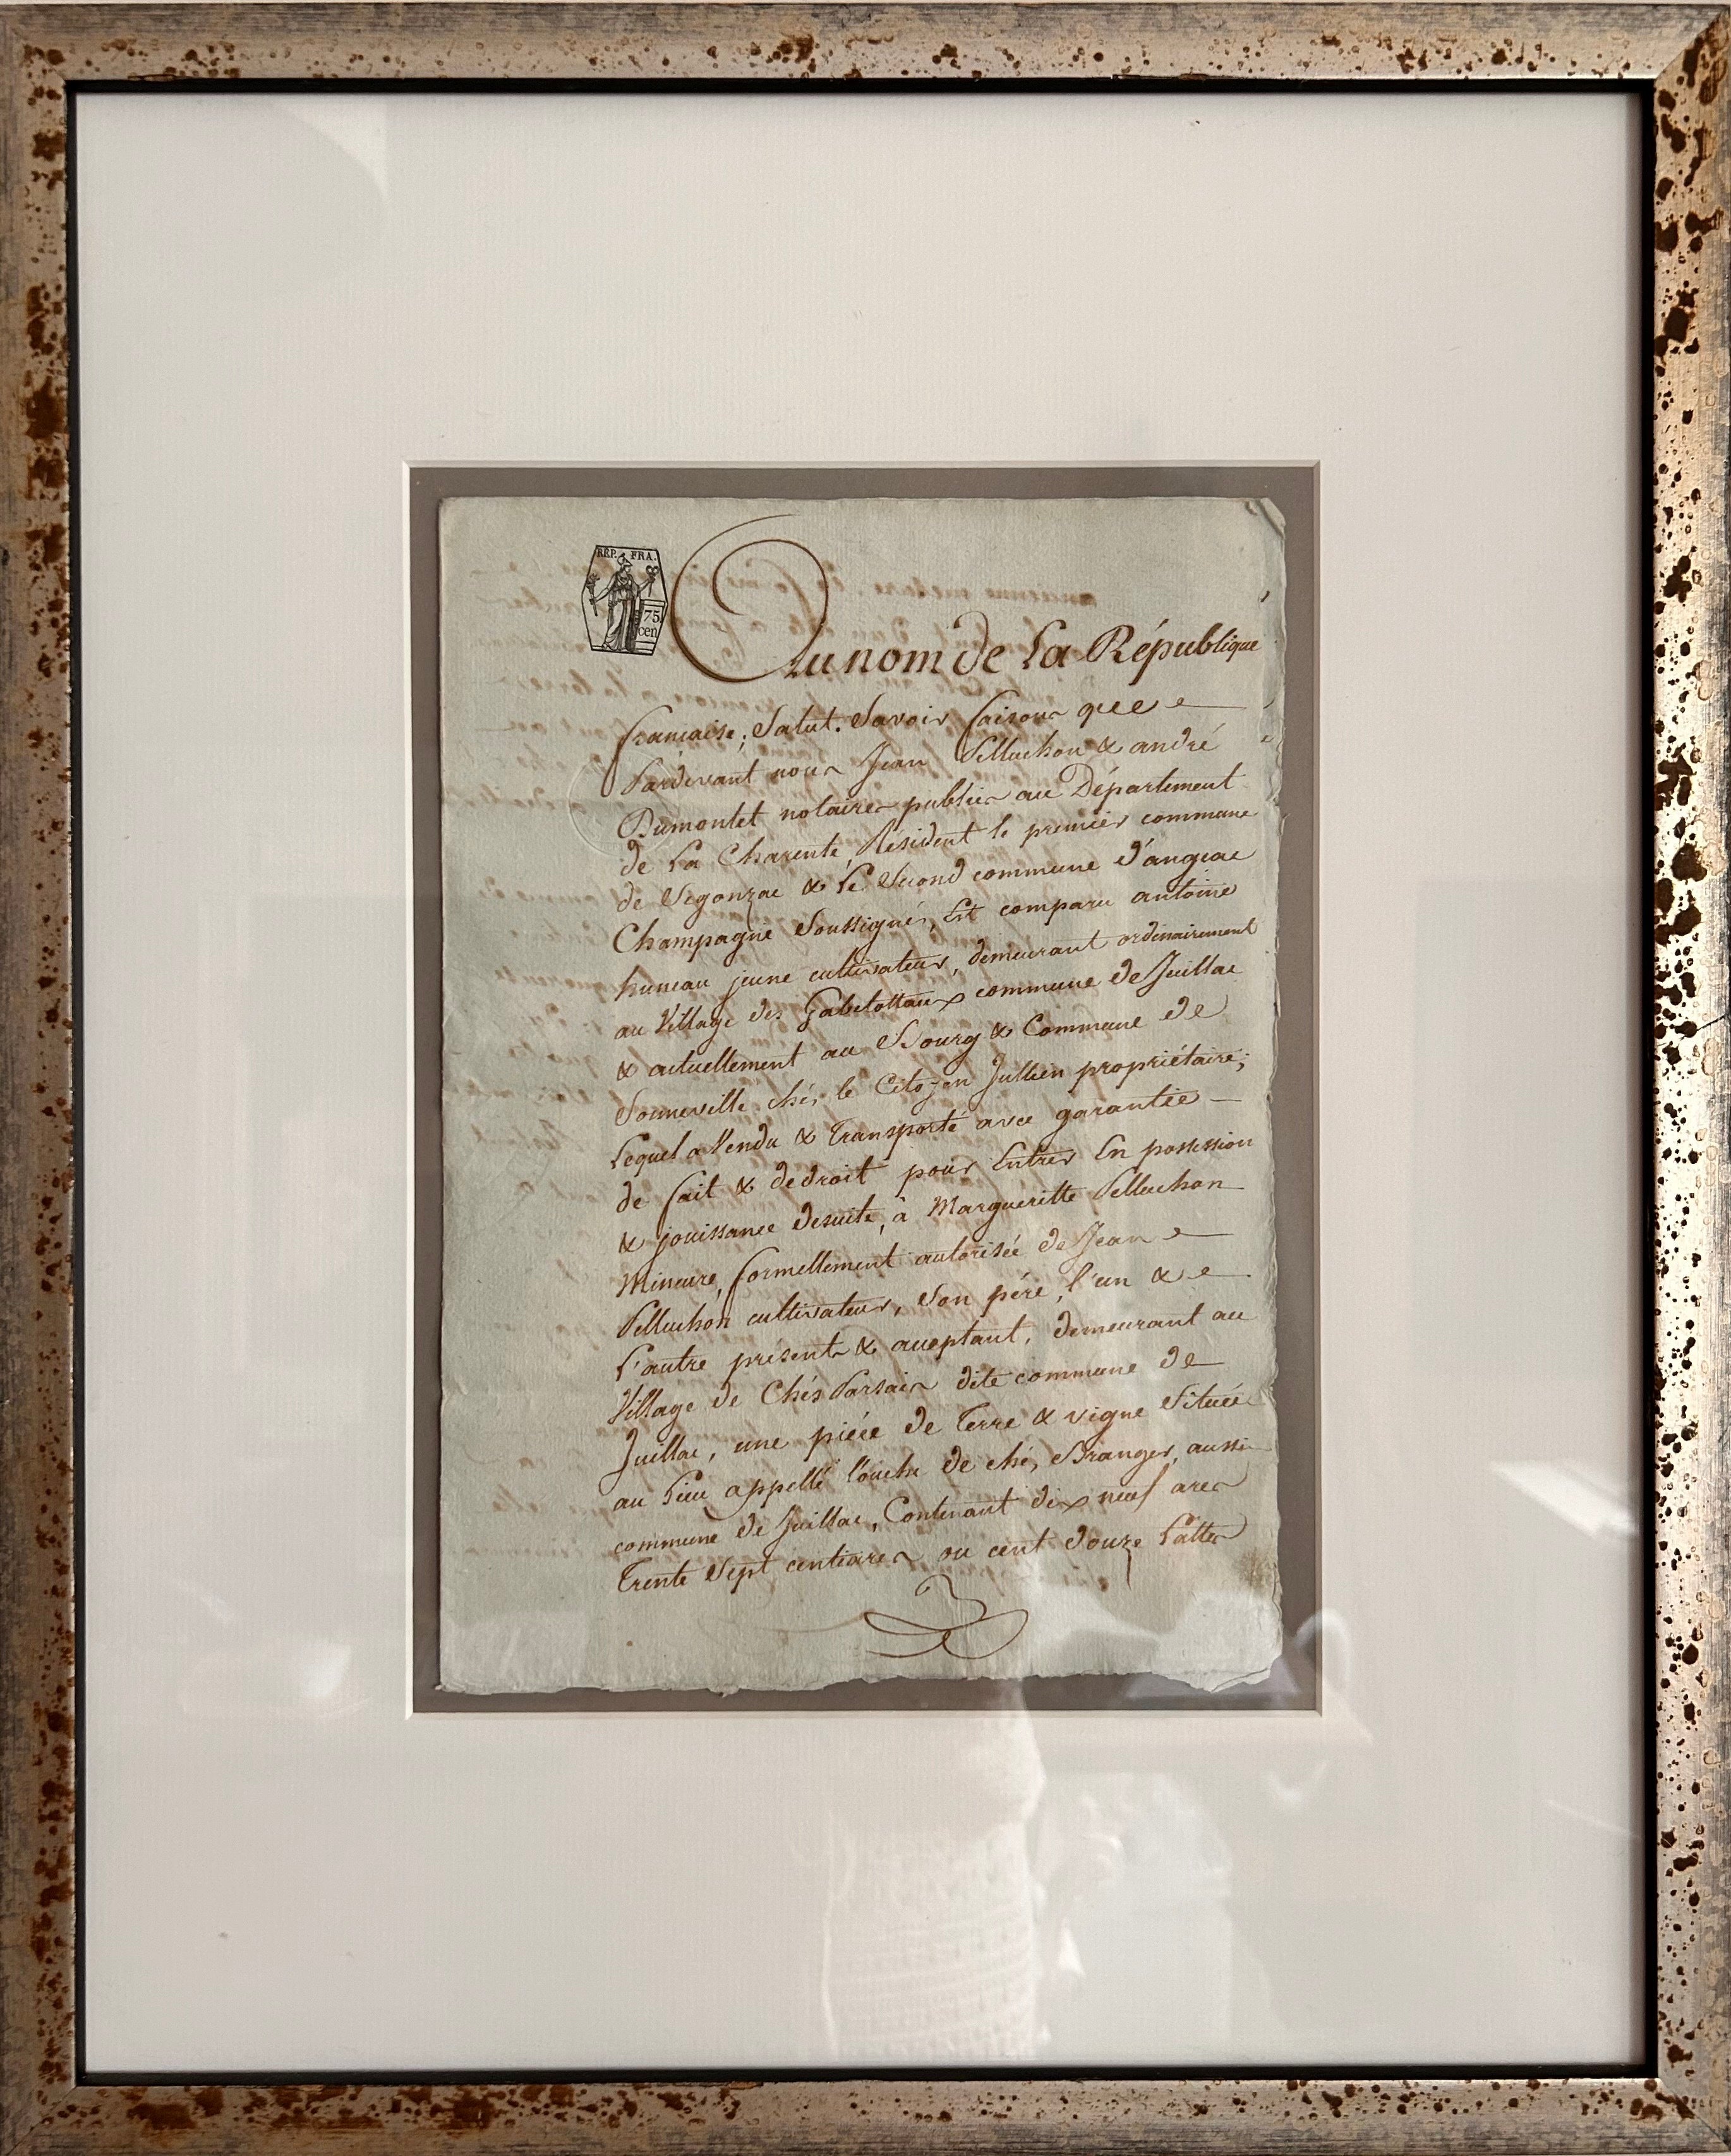 RÉP. FRA.
75
cen
Au nom de La République
française; Salut. Savoir faisons que
Pardevant nous Jean Pelluchon & andré
Dumontet notaires publics au Département
de La Charente, Résident le premier commune
de Segonzac & Le Second commune d'angeac
Champagne Soussignés, Est comparu antoine
huneau jeune cultivateur, demeurant ordinairement
au Village des Gabelottaux commune de Juillac
& actuellement au Bourg & Commune de
Sonneville chés le Citoyen Jullien propriétaire;
Lequel a Vendu & Transporté avec garantie
de fait & de droit pour Entrer En possession
& jouissance desuite, à Margueritte Pelluchon
Mineure, formellement autorisée de Jean
Pelluchon cultivateur, Son pére, l'un &
L'autre présents & acceptant, demeurant au
Village de Chés Parsais dite commune de
Juillac, une piéce de Terre & vigne Située
au Lieu appellé l'ouche de chés Branger, aussi
commune de Juillac, Contenant dix neuf ares
Trente Sept centiares ou cent douze Lattes